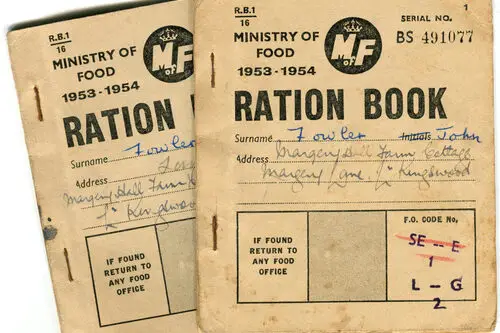 R.B.1
16
MINISTRY OF
FOOD
1953-1954
M F
OF
RATION
Surname Fowler
Address
Margery Hall Farm
Kingswood
IF FOUND
RETURN TO
ANY FOOD
OFFICE
R.B.1
16
1
MINISTRY OF
FOOD
1953-1954
M F
OF
SERIAL NO.
BS 491077
RATION BOOK
Surname Fowler Initials John
Address Margery Hall Farm Cottage
Margery Lane, Kingswood
IF FOUND
RETURN TO
ANY FOOD
OFFICE
F.O. CODE No,
SE -- F
1
L -- G
2